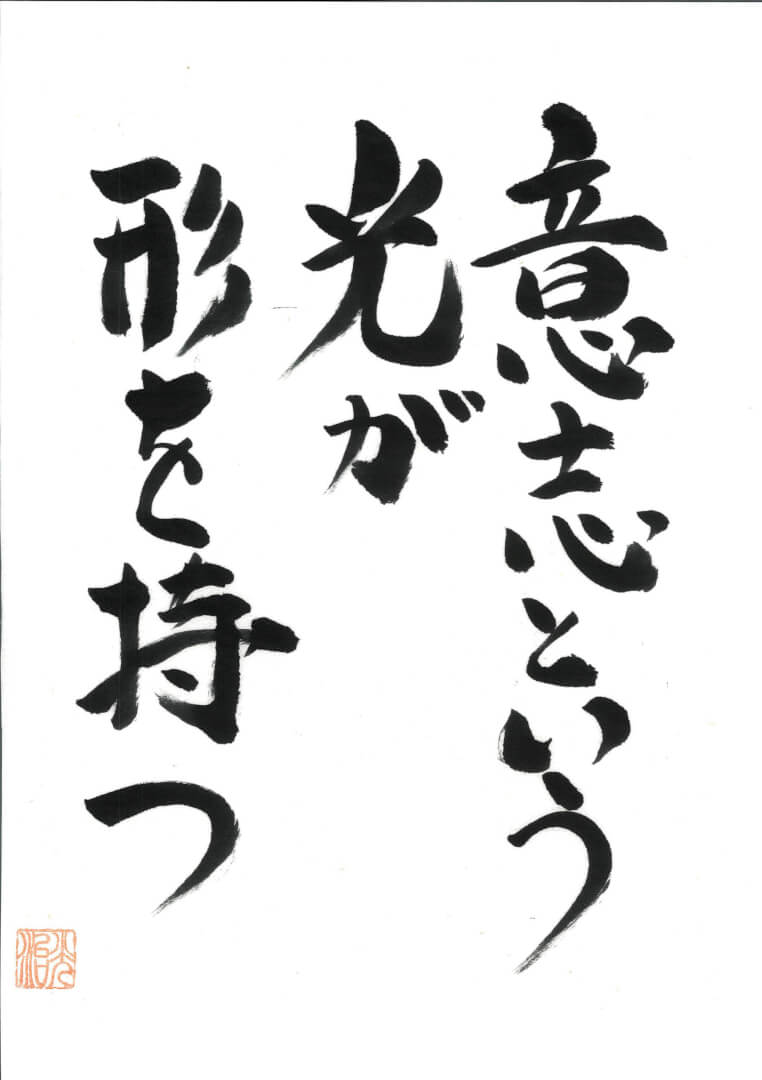 意志という
光が
形を持つ